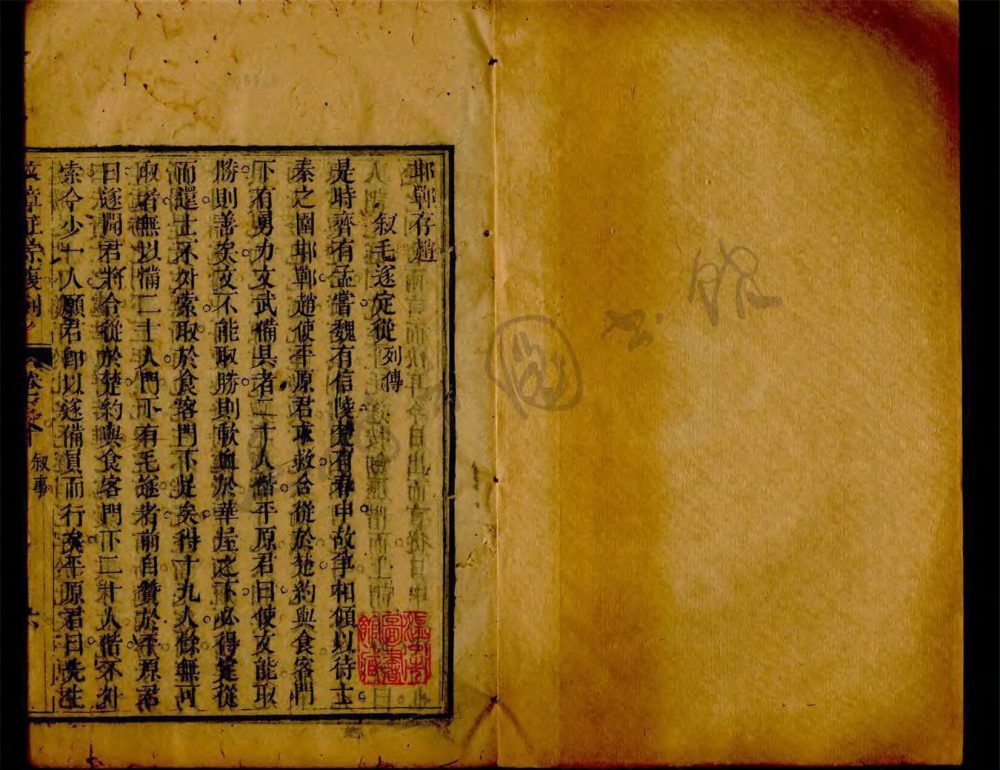 邯鄲存趙
敘毛遂定從 列傳
是時齊有孟嘗魏有信陵楚有春申故爭相傾以待士
秦之圍邯鄲趙使平原君求救合從於楚約與食客門
下有勇力文武備具者二十人偕平原君曰使文能取
勝則善矣文不能取勝則歃血於華屋之下必得定從
而還士不外索取於食客門下足矣得十九人餘無可
取者無以滿二十人門下有毛遂者前自贊於平原君
曰遂聞君將合從於楚約與食客門下二十人偕不外
索今少一人願君即以遂備員而行矣平原君曰先生
文章正宗復刻
敘事
六
圖書館藏